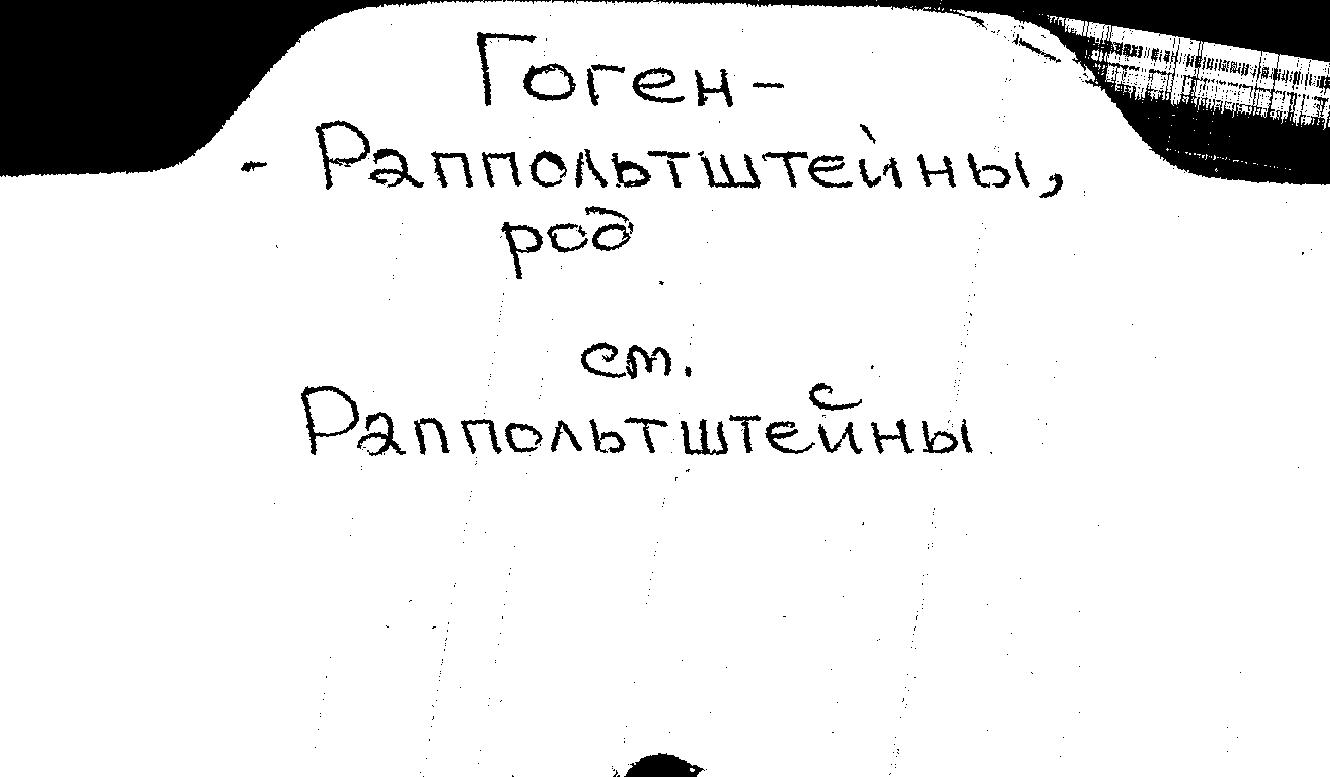 Гоген-
- Раппольтштейны,
род
см.
Раппольтштейны